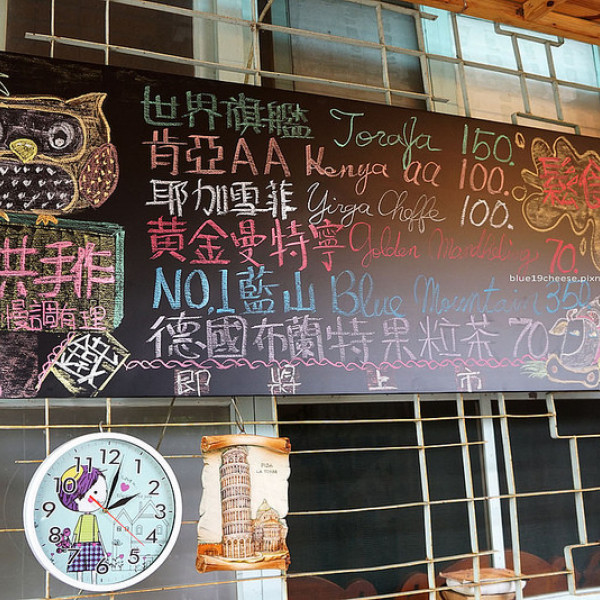 世界旗艦 Toraja 150.
肯亞AA Kenya aa 100.
耶加雪菲 Yirga Cheffe 100.
黃金曼特寧 Golden Mandheling 70.
NO.1藍山 Blue Mountain 350
德國布蘭特果粒茶 70
即將上市
供手作
慢調有理
鬆食
blue19cheese.pixn
12
1
2
3
4
5
6
7
8
9
10
11
PISA
LA TORRE